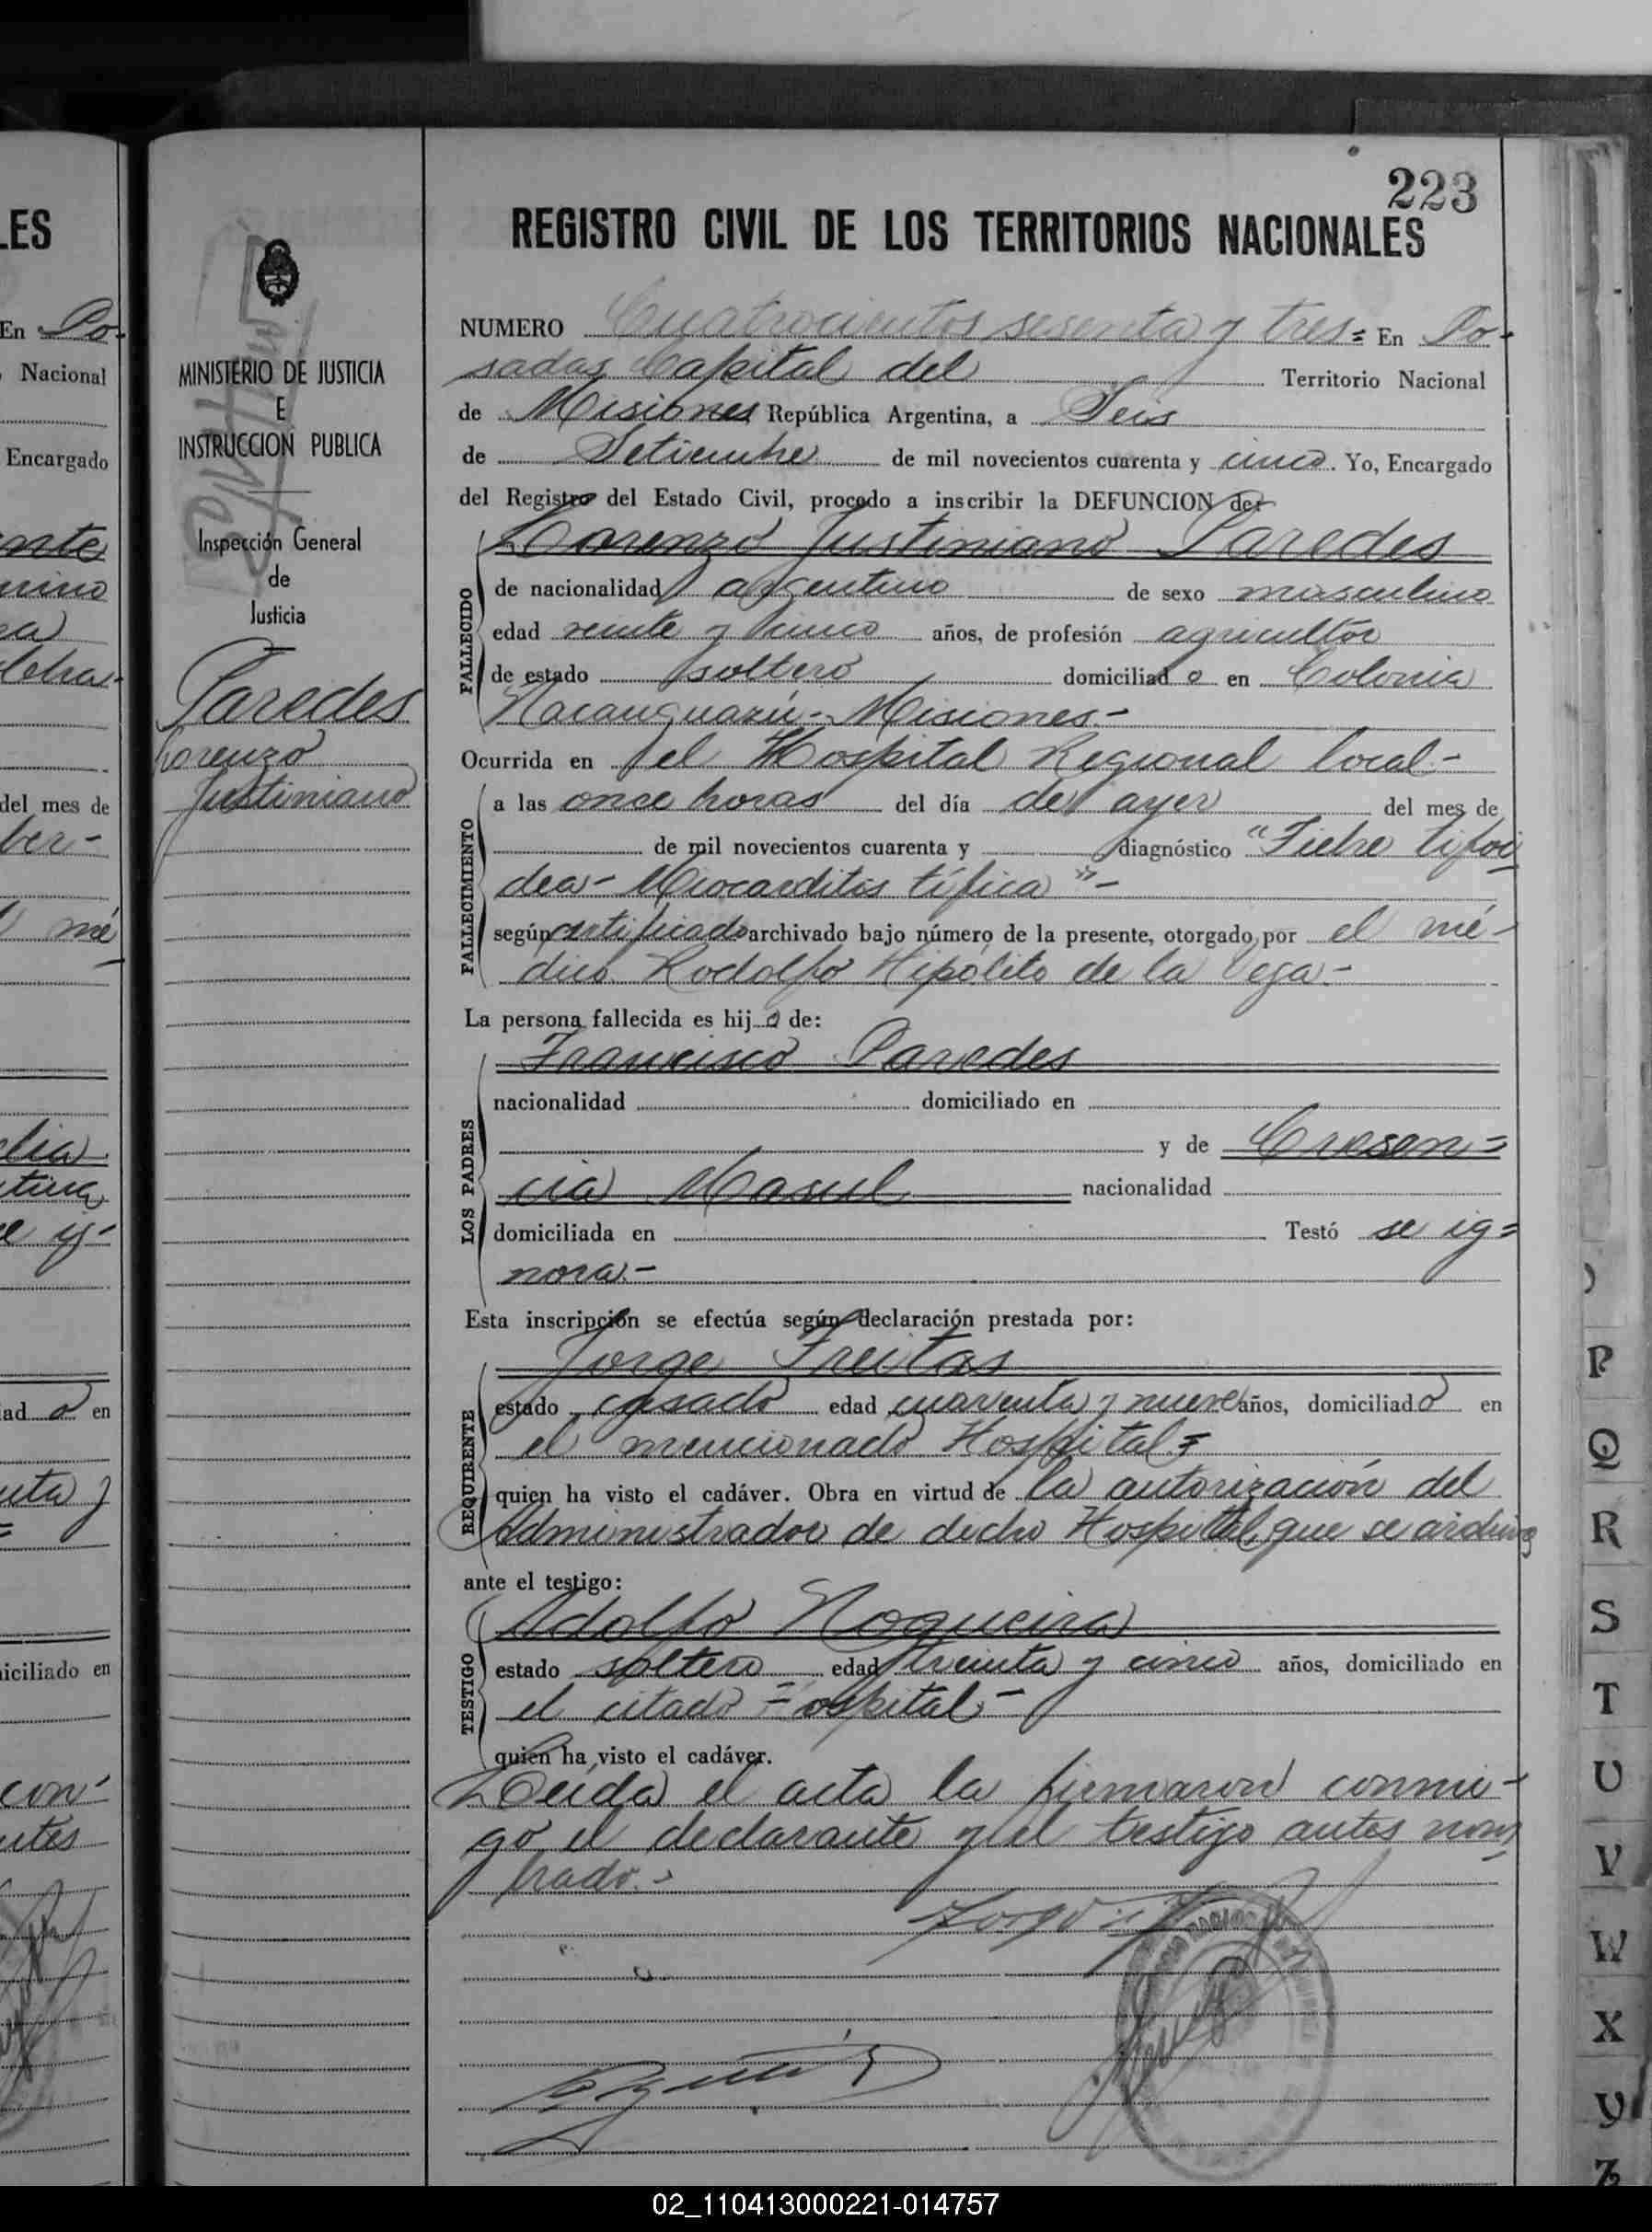 223
REGISTRO CIVIL DE LOS TERRITORIOS NACIONALES
NUMERO Cuatrocientos sesenta y tres = En Po-
sadas Capital del Territorio Nacional
de Misiones República Argentina, a Seis
de Setiembre de mil novecientos cuarenta y cinco. Yo, Encargado
del Registro del Estado Civil, procedo a inscribir la DEFUNCION de:
Lorenzo Justiniano Paredes
FALLECIDO
de nacionalidad argentino de sexo masculino
edad veinte y cinco años, de profesión agricultor
de estado soltero domiciliado en Colonia
Ñacanguazú - Misiones.-
Ocurrida en el Hospital Regional local.-
FALLECIMIENTO
a las once horas del día de ayer del mes de
de mil novecientos cuarenta y diagnóstico "Fiebre tifoi
dea - Miocarditis tífica" -
según certificado archivado bajo número de la presente, otorgado por el mé-
dico Rodolfo Hipólito de la Vega.-
La persona fallecida es hijo de:
LOS PADRES
Francisco Paredes
nacionalidad domiciliado en
y de Cresen=
cia Masul nacionalidad
domiciliada en Testó se ig=
nora.-
Esta inscripción se efectúa según declaración prestada por:
REQUIRENTE
Jorge Freitas
estado casado edad cuarenta y nueve años, domiciliado en
el mencionado Hospital =
quien ha visto el cadáver. Obra en virtud de la autorización del
Administrador de dicho Hospital que se archiva
ante el testigo:
TESTIGO
Adolfo Nogueira
estado soltero edad treinta y cinco años, domiciliado en
el citado Hospital -
quien ha visto el cadáver.
Leída el acta la firmaron conmi-
go el declarante y el testigo antes nom
brado.-
MINISTERIO DE JUSTICIA
E
INSTRUCCION PUBLICA
Inspección General
de
Justicia
Paredes
Lorenzo
Justiniano
LES
En Po-
Nacional
Encargado
del mes de
ad o en
iciliado en
P
Q
R
S
T
U
V
W
X
Y
Z
02_110413000221-014757